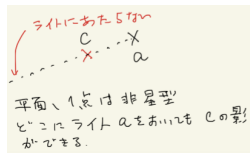 ライトにあたらない
C X
X a
平面\1点は非星型
どこにライトaをおいても Cの影
ができる.